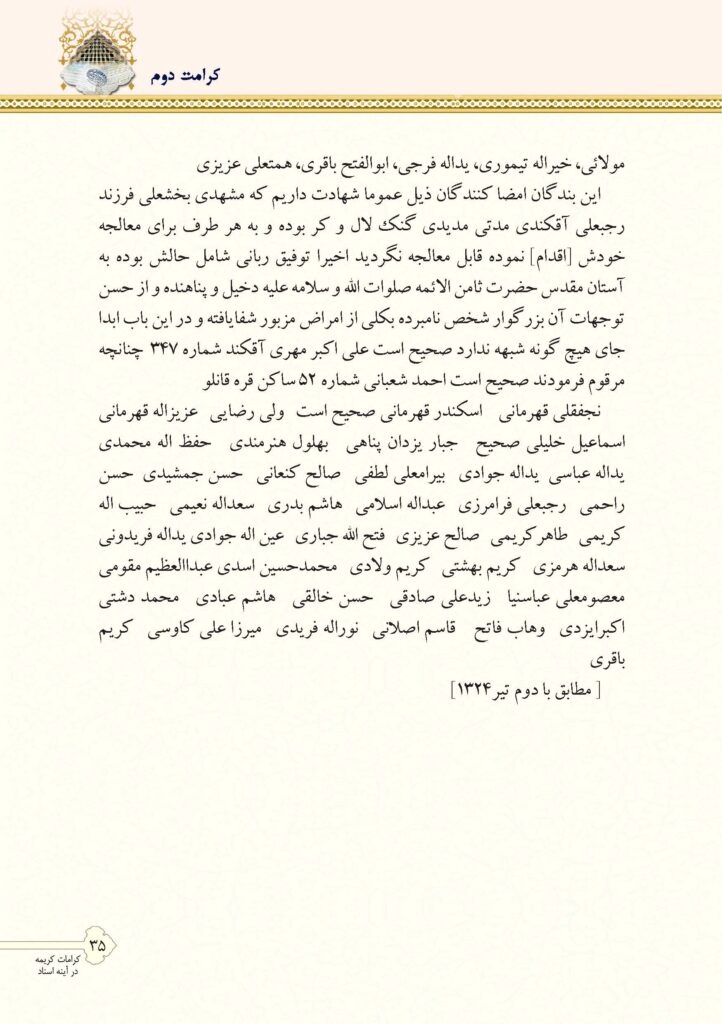 کرامت دوم
مولائی، خیراله تیموری، یداله فرجی، ابوالفتح باقری، همتعلی عزیزی
این بندگان امضا کنندگان ذیل عموما شهادت داریم که مشهدی بخشعلی فرزند
رجبعلی آقکندی مدتی مدیدی گنک لال و کر بوده و به هر طرف برای معالجه
خودش [اقدام] نموده قابل معالجه نگردید اخیرا توفیق ربانی شامل حالش بوده به
آستان مقدس حضرت ثامن الائمه صلوات الله و سلامه علیه دخیل و پناهنده و از حسن
توجهات آن بزرگوار شخص نامبرده بکلی از امراض مزبور شفایافته و در این باب ابدا
جای هیچ گونه شبهه ندارد صحیح است علی اکبر مهری آقکند شماره ۳۴۷ چنانچه
مرقوم فرمودند صحیح است احمد شعبانی شماره ۵۲ ساکن قره قانلو
نجفقلی قهرمانی اسکندر قهرمانی صحیح است ولی رضایی عزیزاله قهرمانی
اسماعیل خلیلی صحیح جبار یزدان پناهی بهلول هنرمندی حفظ اله محمدی
یداله عباسی یداله جوادی بیرامعلی لطفی صالح کنعانی حسن جمشیدی حسن
راحمی رجبعلی فرامرزی عبداله اسلامی هاشم بدری سعداله نعیمی حبیب اله
کریمی طاهرکریمی صالح عزیزی فتح الله جباری عین اله جوادی یداله فریدونی
سعداله هرمزی کریم بهشتی کریم ولادی محمدحسین اسدی عبداالعظیم مقومی
معصومعلی عباسنیا زیدعلی صادقی حسن خالقی هاشم عبادی محمد دشتی
اکبرایزدی وهاب فاتح قاسم اصلانی نوراله فریدی میرزا علی کاوسی کریم
باقری
[ مطابق با دوم تیر۱۳۲۴]
۳۵
کرامات کریمه
در آینه اسناد